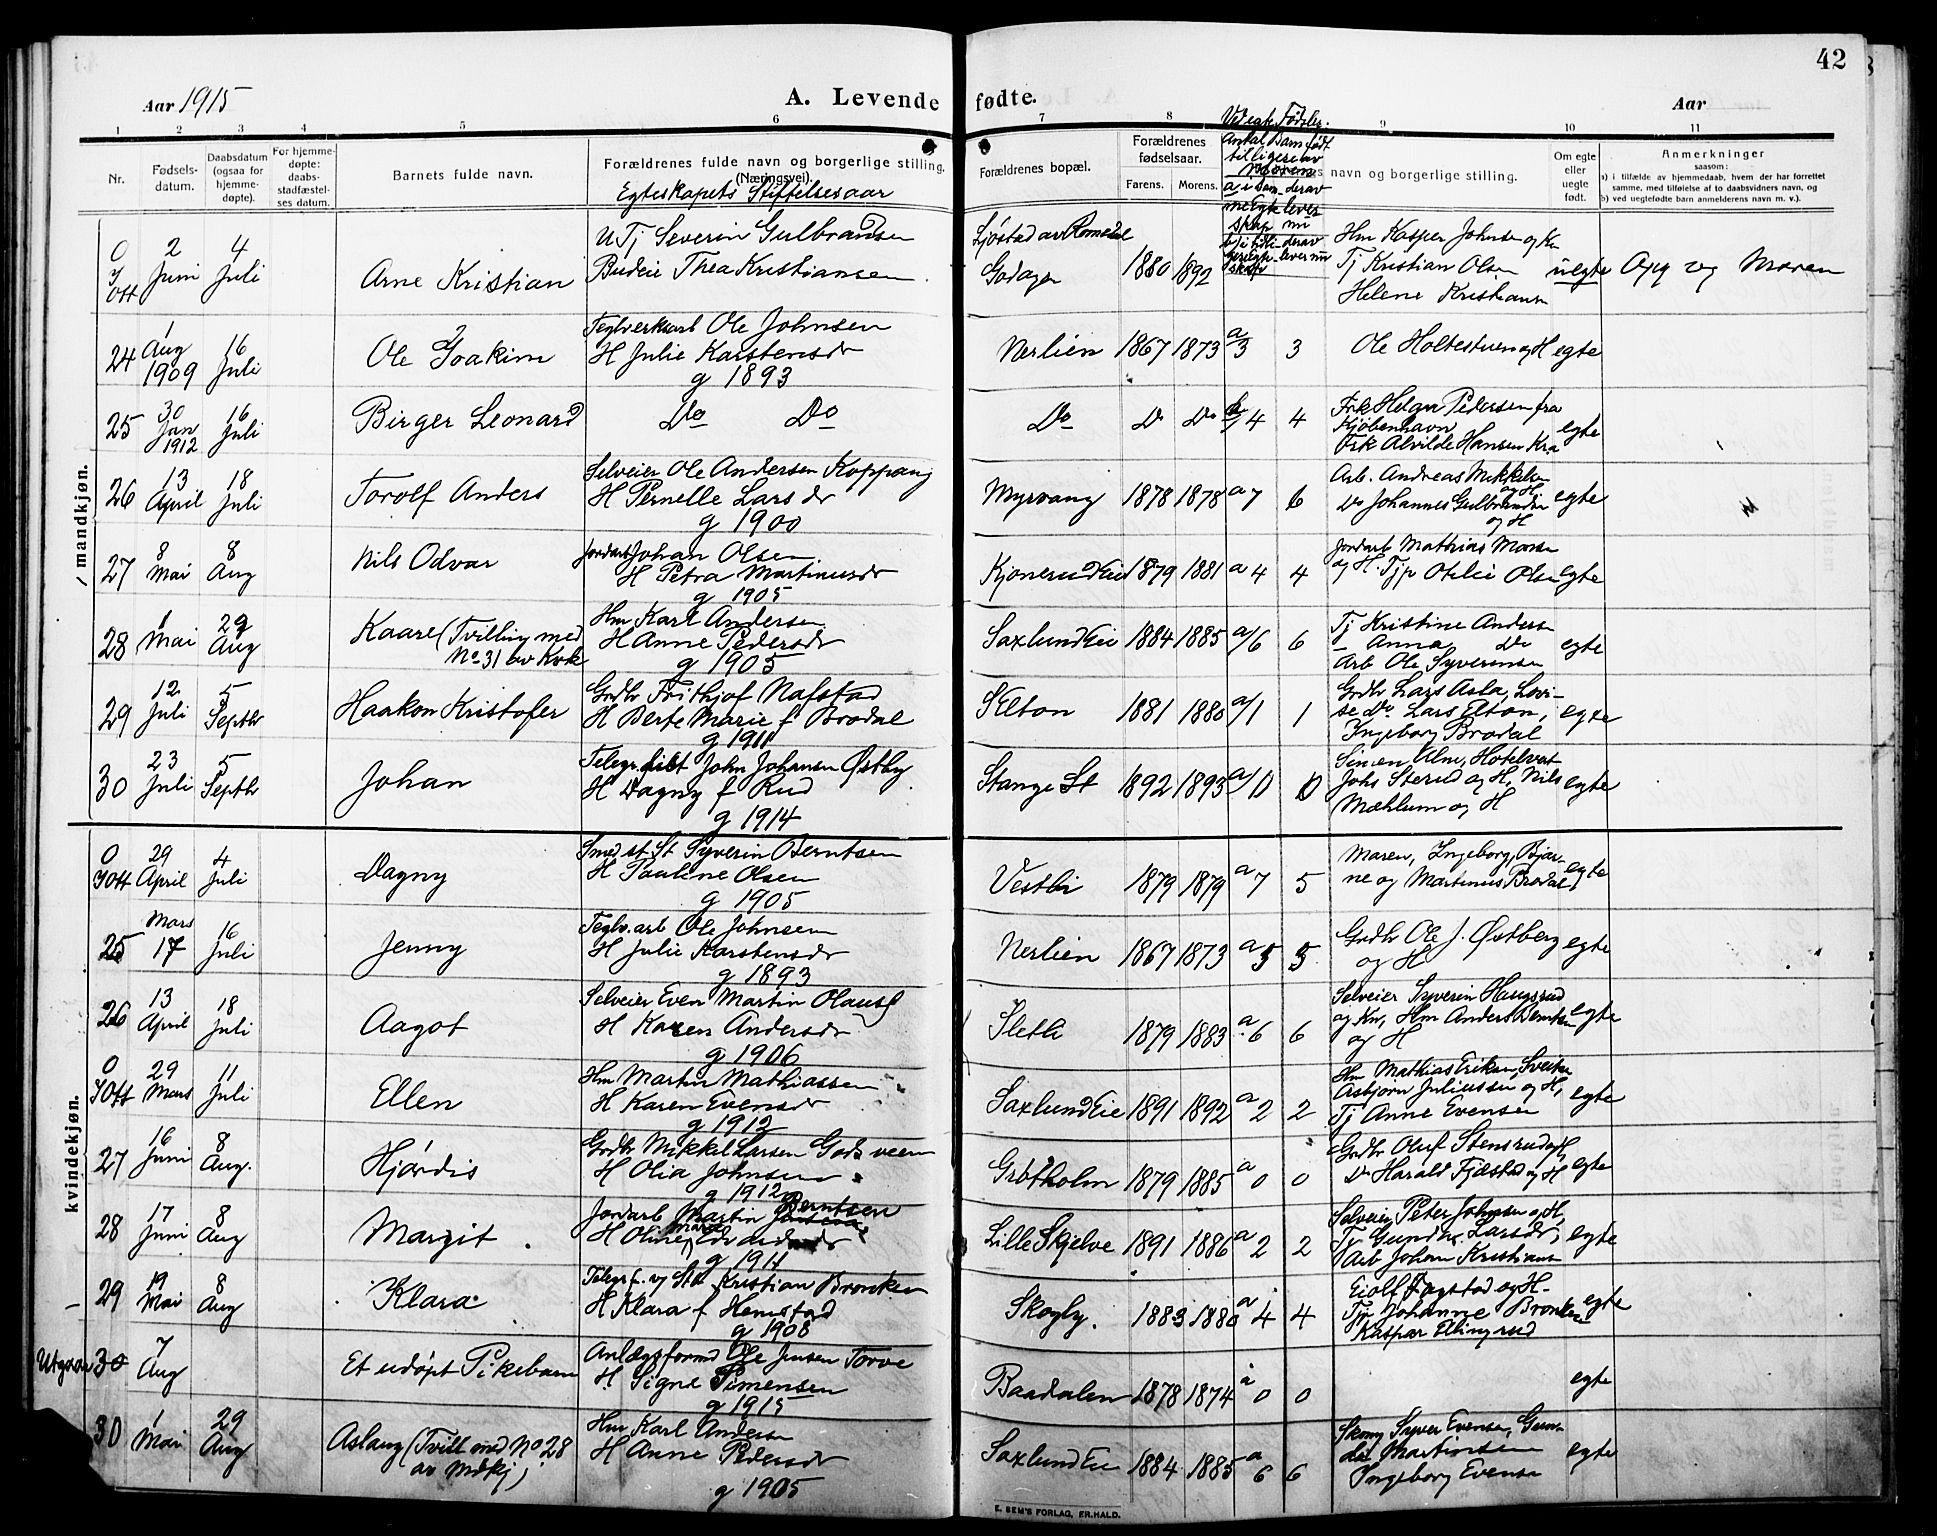 42
Aar 1915
A. Levende
fødte.
Aar
1 2 3 4 5 6
7 8 9 10 11
Nr.
Fødsels-
datum.
Daabsdatum
(ogsaa for
hjemme-
døpte).
For hjemme-
døpte:
daabs-
stadfæstel-
ses datum.
Barnets fulde navn.
Forældrenes fulde navn og borgerlige stilling.
(Næringsvei).
Egteskapets Stiftelsesaar
Forældrenes bopæl.
Forældrenes
fødselsaar.
Farens. Morens.
navn og borgerlige stilling.
Om egte
eller
uegte
født.
Anmerkninger
saasom:
a) i tilfælde av hjemmedaab, hvem der har forrettet
samme, med tilføielse af to daabsvidners navn, og
b) ved uegtefødte barn anmelderens navn m. v.).
mandkjøn.
0 2 4 U Tj Severin Gulbrandsen
Juni Juli Arne Kristian Budeie Thea Kristiansen
Godager 1880 1892
Hm Kasper Johnsen og Kn
Tj Kristian Olsen uegte Opg og Moren
Helene Kristians
24 1 Aug 1909 16 Juli Ole Joakim
Teglverksarb Ole Johnsen
H Julie Karstensdr
g 1893
Nerlien 1867 1873 a/3 3 Ole Holtestuen og H egte
25 30 Jan 1912 16 Juli Birger Leonard Do Do
Do Do Do b/4 4
Frk Helga Pedersen fra
Kjøbenhavn
Frk Alvilde Hansen Kra egte
26 13 April 18 Juli Torolf Anders
Selveier Ole Andersen Koppang
H Pernelle Larsdr
g 1900
Myrvang 1878 1878 a 7 6
Arb. Andreas Mikkelsen
og H
Do Johannes Gulbrandsen egte
og H
27 8 Mai 8 Aug Nils Odvar
Jordarb Johan Olsen
H Petra Martinusdr
g 1905
Kjonerud Eie 1879 1881 a 4 4
Jordarb Mathias Moser
og H. Tjp Otilie Olsen egte
28 1 Mai 29 Aug Kaare (Tvilling med
No 31 av Kvk
Hm Karl Andersen
H Anne Pedersdr
g 1905
Saxlund Eie 1884 1885 a/6 6
Tj Kristine Anders
Anna Do egte
Arb Ole Syversen
29 12 Juli 5 Septbr Haakon Kristofer
Grdbr Frithjof Nafstad
H Berte Marie f Brodal
g 1911
Elton 1881 1880 a/1 1
Grdbr Lars Asla, Lovi-
se Do Lars Elton, egte
Ingeborg Brodal
30 23 Juli 5 Septbr Johan
John Johansen Østby
H Dagny f Rud
g 1914
Stange St 1892 1893 a/0 0
Simen Alm, Hotelvert
Johs Sterud og H, Nils egte
Mæhlum og H
kvindekjøn.
0 29 April 4 Juli Dagny
Smed st. St Syverin Berntsen
H Pauline Olsen
g 1905
Vestbi 1879 1879 a 7 5
Maren, Ingeborg, Bjar-
ne og Martinus Brodal egte
25 Mars 17 16 Juli Jenny
Teglv.arb Ole Johnsen
H Julie Karstensdr
g 1893
Nerlien 1867 1873 a 5 5
Grdbr Ole J. Østberg egte
og H
26 13 April 18 Juli Aagot
Selveier Even Martin Olausen
H Karen Andersdr
g 1906
Sletli 1879 1883 a 6 6
Selveier Syverin Haugsrud
og Kn, Hm Anders Berntsen egte
og H
0 29 Mars 11 Juli Ellen
Hm Martin Mathiassen
H Karen Evensdr
g 1912
Saxlund Eie 1891 1892 a 2 2
Hm Mathias Eriksen,
Asbjørn Juliussen og H, egte
Tj Anne Evensen
27 16 Juni 8 Aug. Hjørdis
Grdbr Mikkel Larsen Godsveen
H Olia Johnsen
g 1912
Grøtholm 1879 1885 a 0 0
Grdbr Oluf Stensrud og H,
Do Harald Fjæstad og H egte
28 17 Juni 8 Aug Margit
Jordarb Martin Berntsen
H Oline
g 1911
Lille Skjelve 1891 1886 a 2 2
Selveier Peter Johnsen og H,
Tj Larsdr, egte
Arb Johan Kristians
29 19 Mai 8 Aug Klara
Telegrf. og Kristian Bronken
H Klara f Hemstad
g 1908
Skogly. 1883 1880 a 4 4
Eiolf Fagstad og H
Tjp Johanne Bronken egte
Kaspar Ellingsrud
Utgaar 30 7 Aug Et udøpt Pikebarn
Anlægsformd Ole Jensen Torve
H. Signe Simensen
g 1915
Baadalen 1878 1874 a 0 0 egte
30 1 Mai 29 Aug Aslaug (Tvill med No 28
av Mdkj)
Hm Karl Andersen
H Anne Pedersdr
g 1905
Saxlund Eie 1884 1885 a 6 6
Syver Evensen, Gun-
da Martinsen egte
Ingeborg Evensen
E. SEM'S FORLAG, FR.HALD.